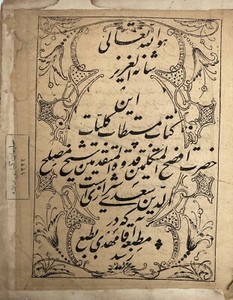 هو الله تعالی
شانه العزیز
این
کتاب مستطاب کلیات
حضرت افصح المتکلمین قدوة المتقدمین شیخ مصلح
الدین سعدی شیرازی است
که در
مطبعه آقا مهدی بطبع
رسید
۱۲۶۲